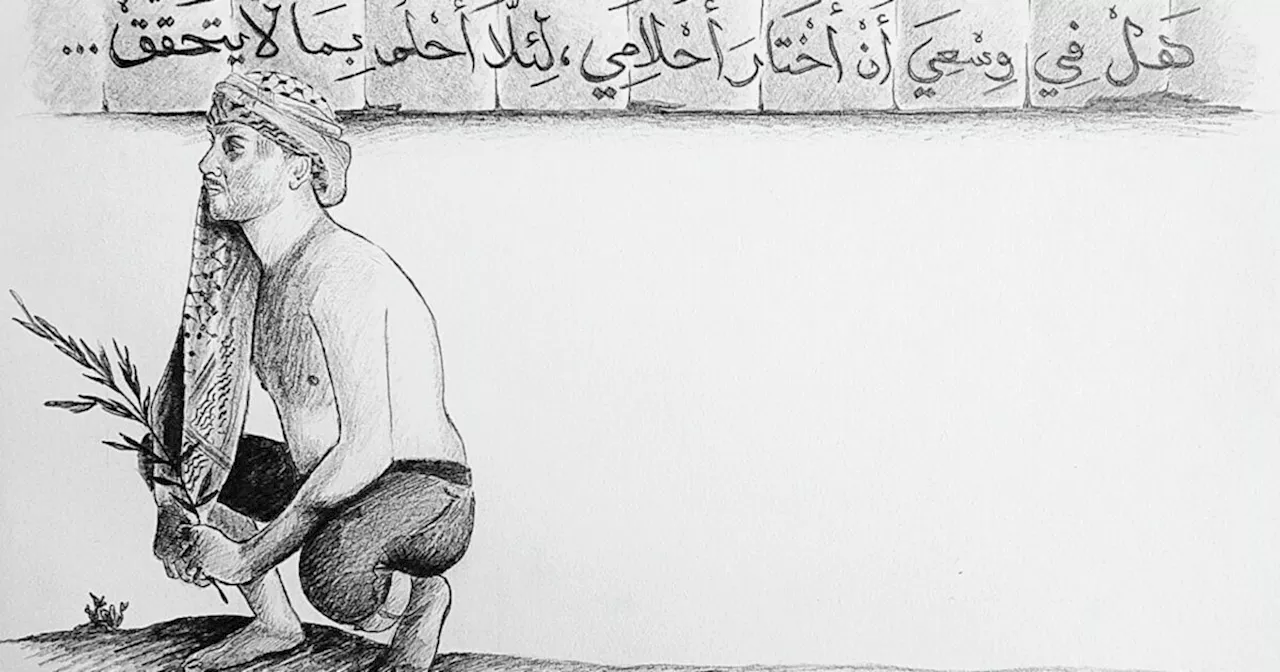 هَلْ فِي وِسْعِيَ أَنْ أَخْتَارَ أَحْلَامِي، لِئَلَّا أَحْلُمَ بِمَا لَا يَتَحَقَّقُ...